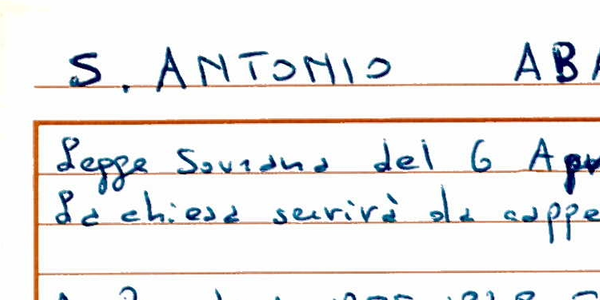 S. ANTONIO ABA
Legge Sovrana del 6 Apr
La chiesa servirà da cappe